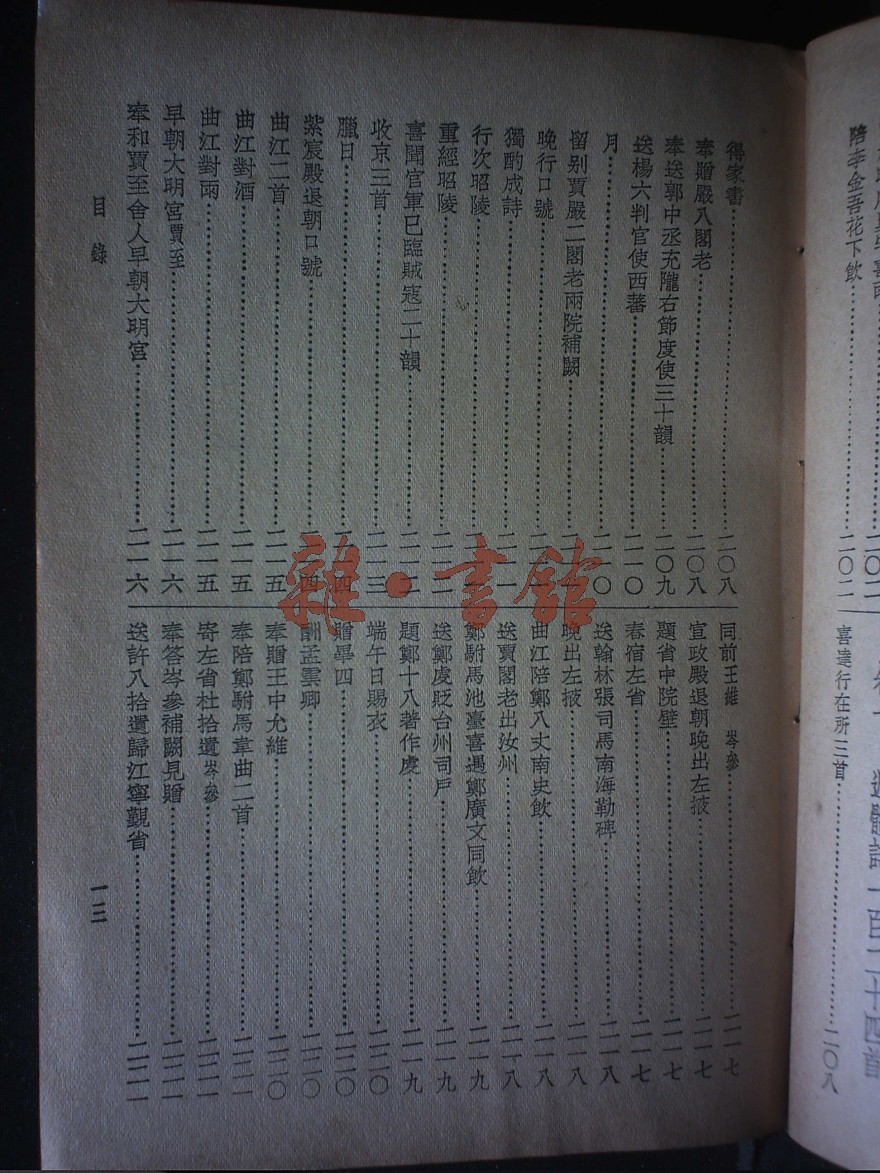 陪李金吾花下飲……二〇二
近體詩一百二十四首
喜達行在所三首……二〇八
得家書……二〇八
奉贈嚴八閣老……二〇八
奉送郭中丞充隴右節度使三十韻……二〇九
送楊六判官使西蕃……二一〇
月……二一〇
留別賈嚴二閣老兩院補闕……
晚行口號……
獨酌成詩……
行次昭陵……
重經昭陵……
喜聞官軍已臨賊寇二十韻……二一二
收京三首……二一三
臘日……二一四
紫宸殿退朝口號……二一四
曲江二首……二一五
曲江對酒……二一五
曲江對雨……二一五
早朝大明宮賈至……二一六
奉和賈至舍人早朝大明宮……二一六
同前王維 岑參……二一七
宣政殿退朝晚出左掖……二一七
題省中院壁……二一七
春宿左省……二一七
送翰林張司馬南海勒碑……二一八
晚出左掖……二一八
曲江陪鄭八丈南史飲……二一八
送賈閣老出汝州……二一八
鄭駙馬池臺喜遇鄭廣文同飲……二一九
送鄭虔貶台州司戶……二一九
題鄭十八著作虔……二一九
端午日賜衣……二二〇
贈畢四……二二〇
酬孟雲卿……二二〇
奉贈王中允維……二二〇
奉陪鄭駙馬韋曲二首……二二一
寄左省杜拾遺岑參……二二一
奉答岑參補闕見贈……二二一
送許八拾遺歸江寧覲省……
目錄
一三
雜·書館